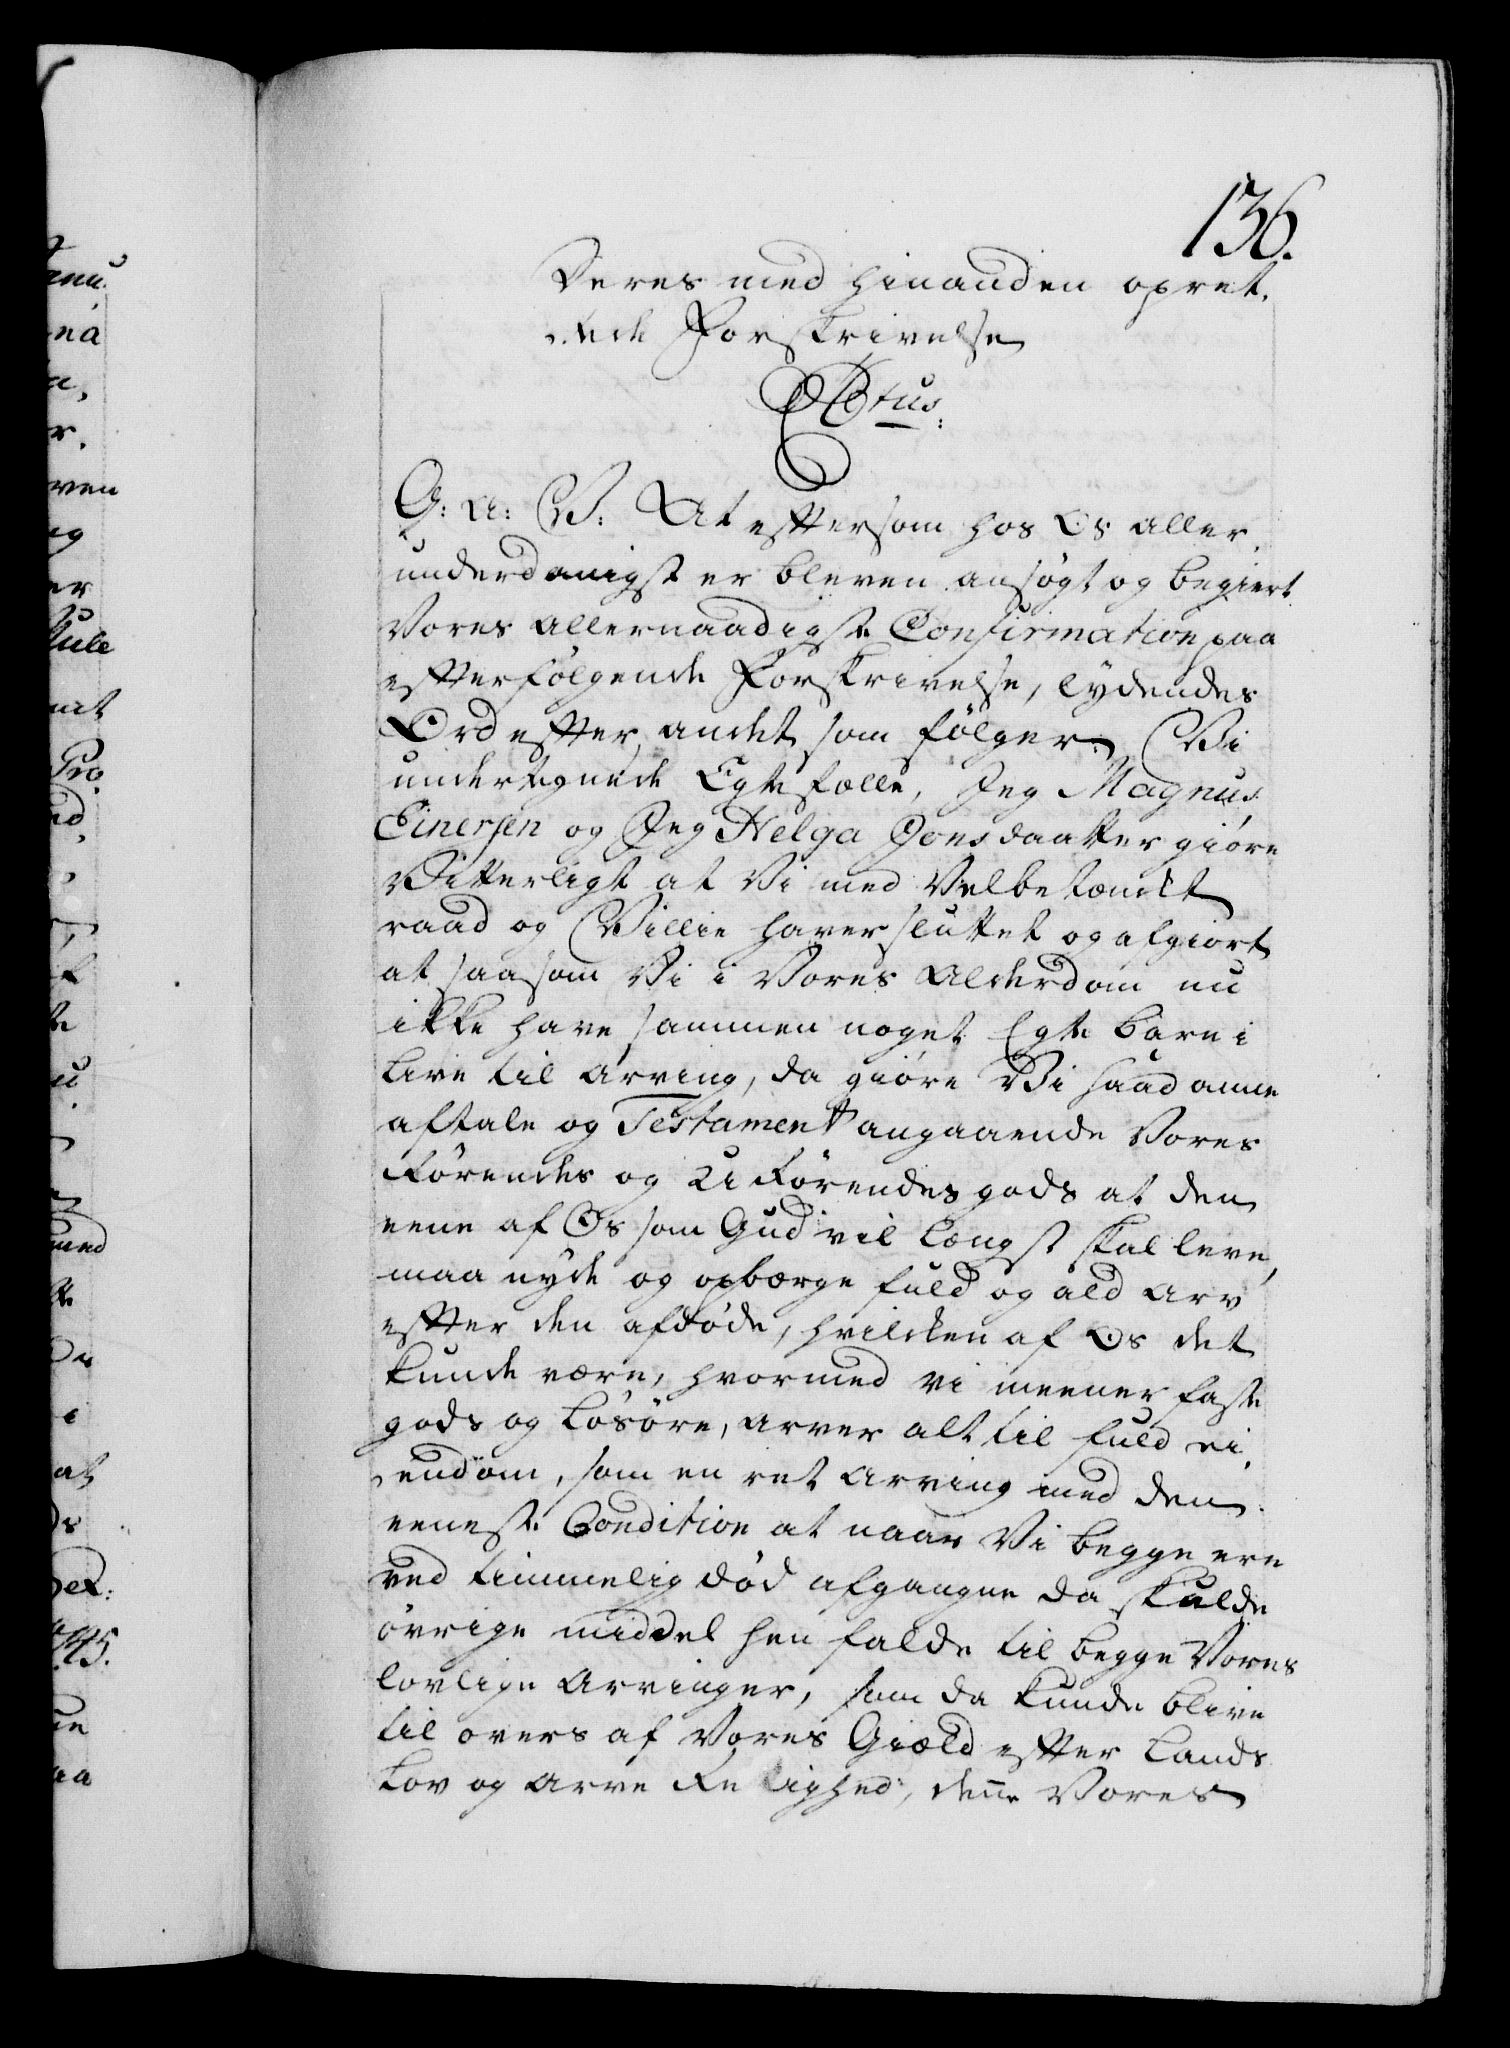 136.
Deres med hinanden opret-
tede Forskrivelse
C6tus.
G: A: V: At efftersom hos Os aller-
underdanigst er bleven ansøgt og begiert
Vores allernaadigste Confirmation paa
effterfølgende Forskrivelse, lydendes
Ord effter andet som følger. Vi
undertegnede Egtefælle, Jeg Magnus
Einersen og Jeg Helga Jonsdaatter giøre
Vitterligt at Vi med Velbetænckt
raad og Villie haver sluttet og afgiort
at saasom Vi i Vores Alderdom nu
ikke have sammen noget Egte barn i
Live til arving, da giøre Vi saadanne
aftale og Testament angaaende Vores
Rørendes og Urørendes gods at den
eene af Os som Gud vil længst skal leve,
maa nyde og opbærge fuld og ald Arv
effter den afdøde, hvilcken af Os det
kunde være, hvormed vi meener faste
gods og Løsøre, arver alt til fuld ei-
endom, som en ret Arving med den
eeneste Condition at naar Vi begge ere
ved timmelig død afgangne da skulde
øvrige middel hen falde til begge Vores
lovlige Arvinger, som da kunde blive
til overs af Vores Giæld effter Lands
Lov og Arve Rettighed, denne Vores
anu.
na
a,
r.
ven
og
er
Jule
Pro
nd
med
i
at
ds
Oct:
1745.
ne
aa